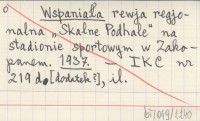 Wspaniała rewja regjo-
nalna „Skalne Podhale" na
stadionie sportowym w Zako-
panem. 1937. — IKC nr
219 d. [dodatek?], il.